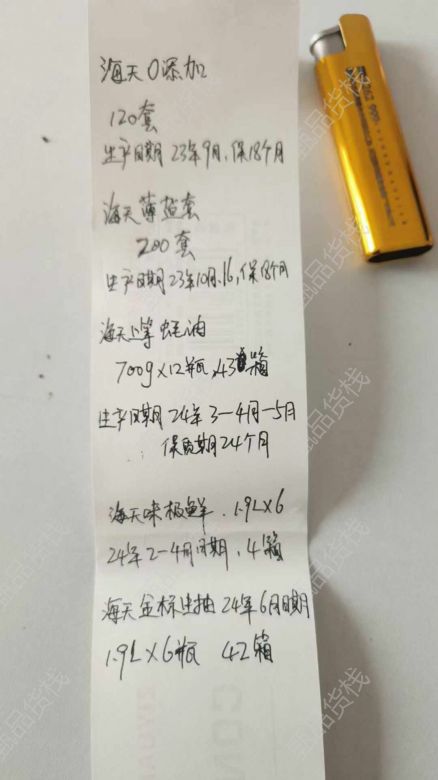 海天0添加
120套
生产日期23年9月,保18个月
海天薄盐套
200套
生产日期23年10月.16,保18个月
海天上等蚝油
700g×12瓶,43箱
生产日期24年3-4月-5月
保质期24个月
海天味极鲜.1.9L×6
24年2-4月日期,4箱
海天金标生抽24年6月日期
1.9L×6瓶 42箱
品货栈